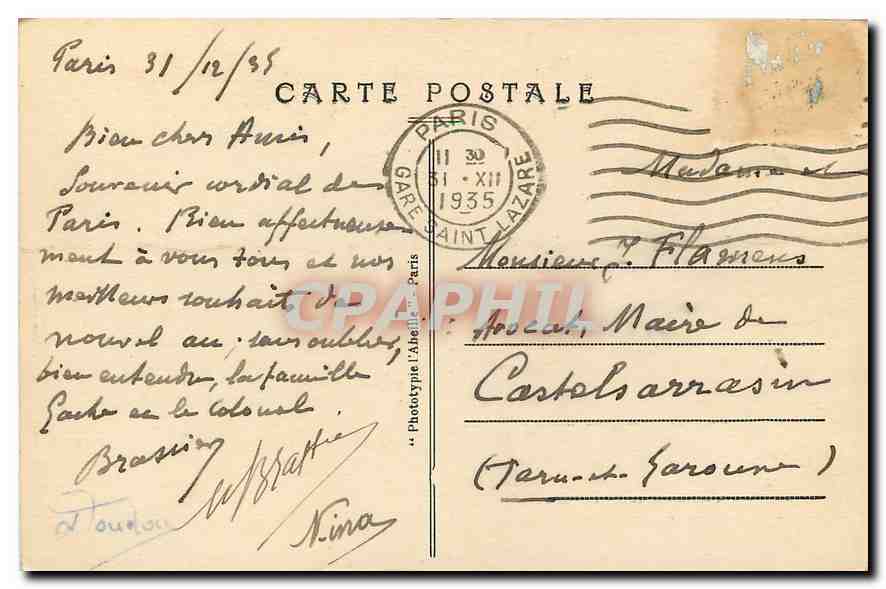 Paris 31/12/35
CARTE POSTALE
Bien chers Amis,
Souvenir cordial de
Paris. Bien affectueuse
ment à vous tous et nos
meilleurs souhaits de
nouvel an, sans oublier,
bien entendu, la famille
et le Colonel.
Brassier
Nina
et Toudou
PARIS
11 30
31 • XII
1935
GARE SAINT LAZARE
"Phototypie l'Abeille" - Paris
CPAPHIL
Madame et
Monsieur J. Flamens
Avocat, Maire de
Castelsarrasin
(Tarn-et-Garonne)